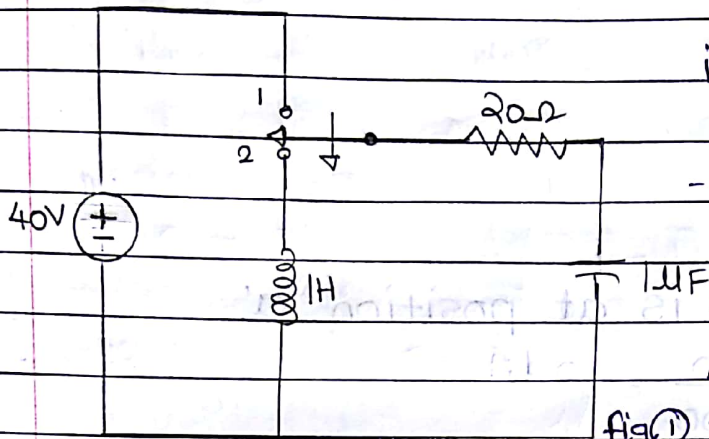 1
20Ω
2
40V
+
-
1H
1μF
fig ①